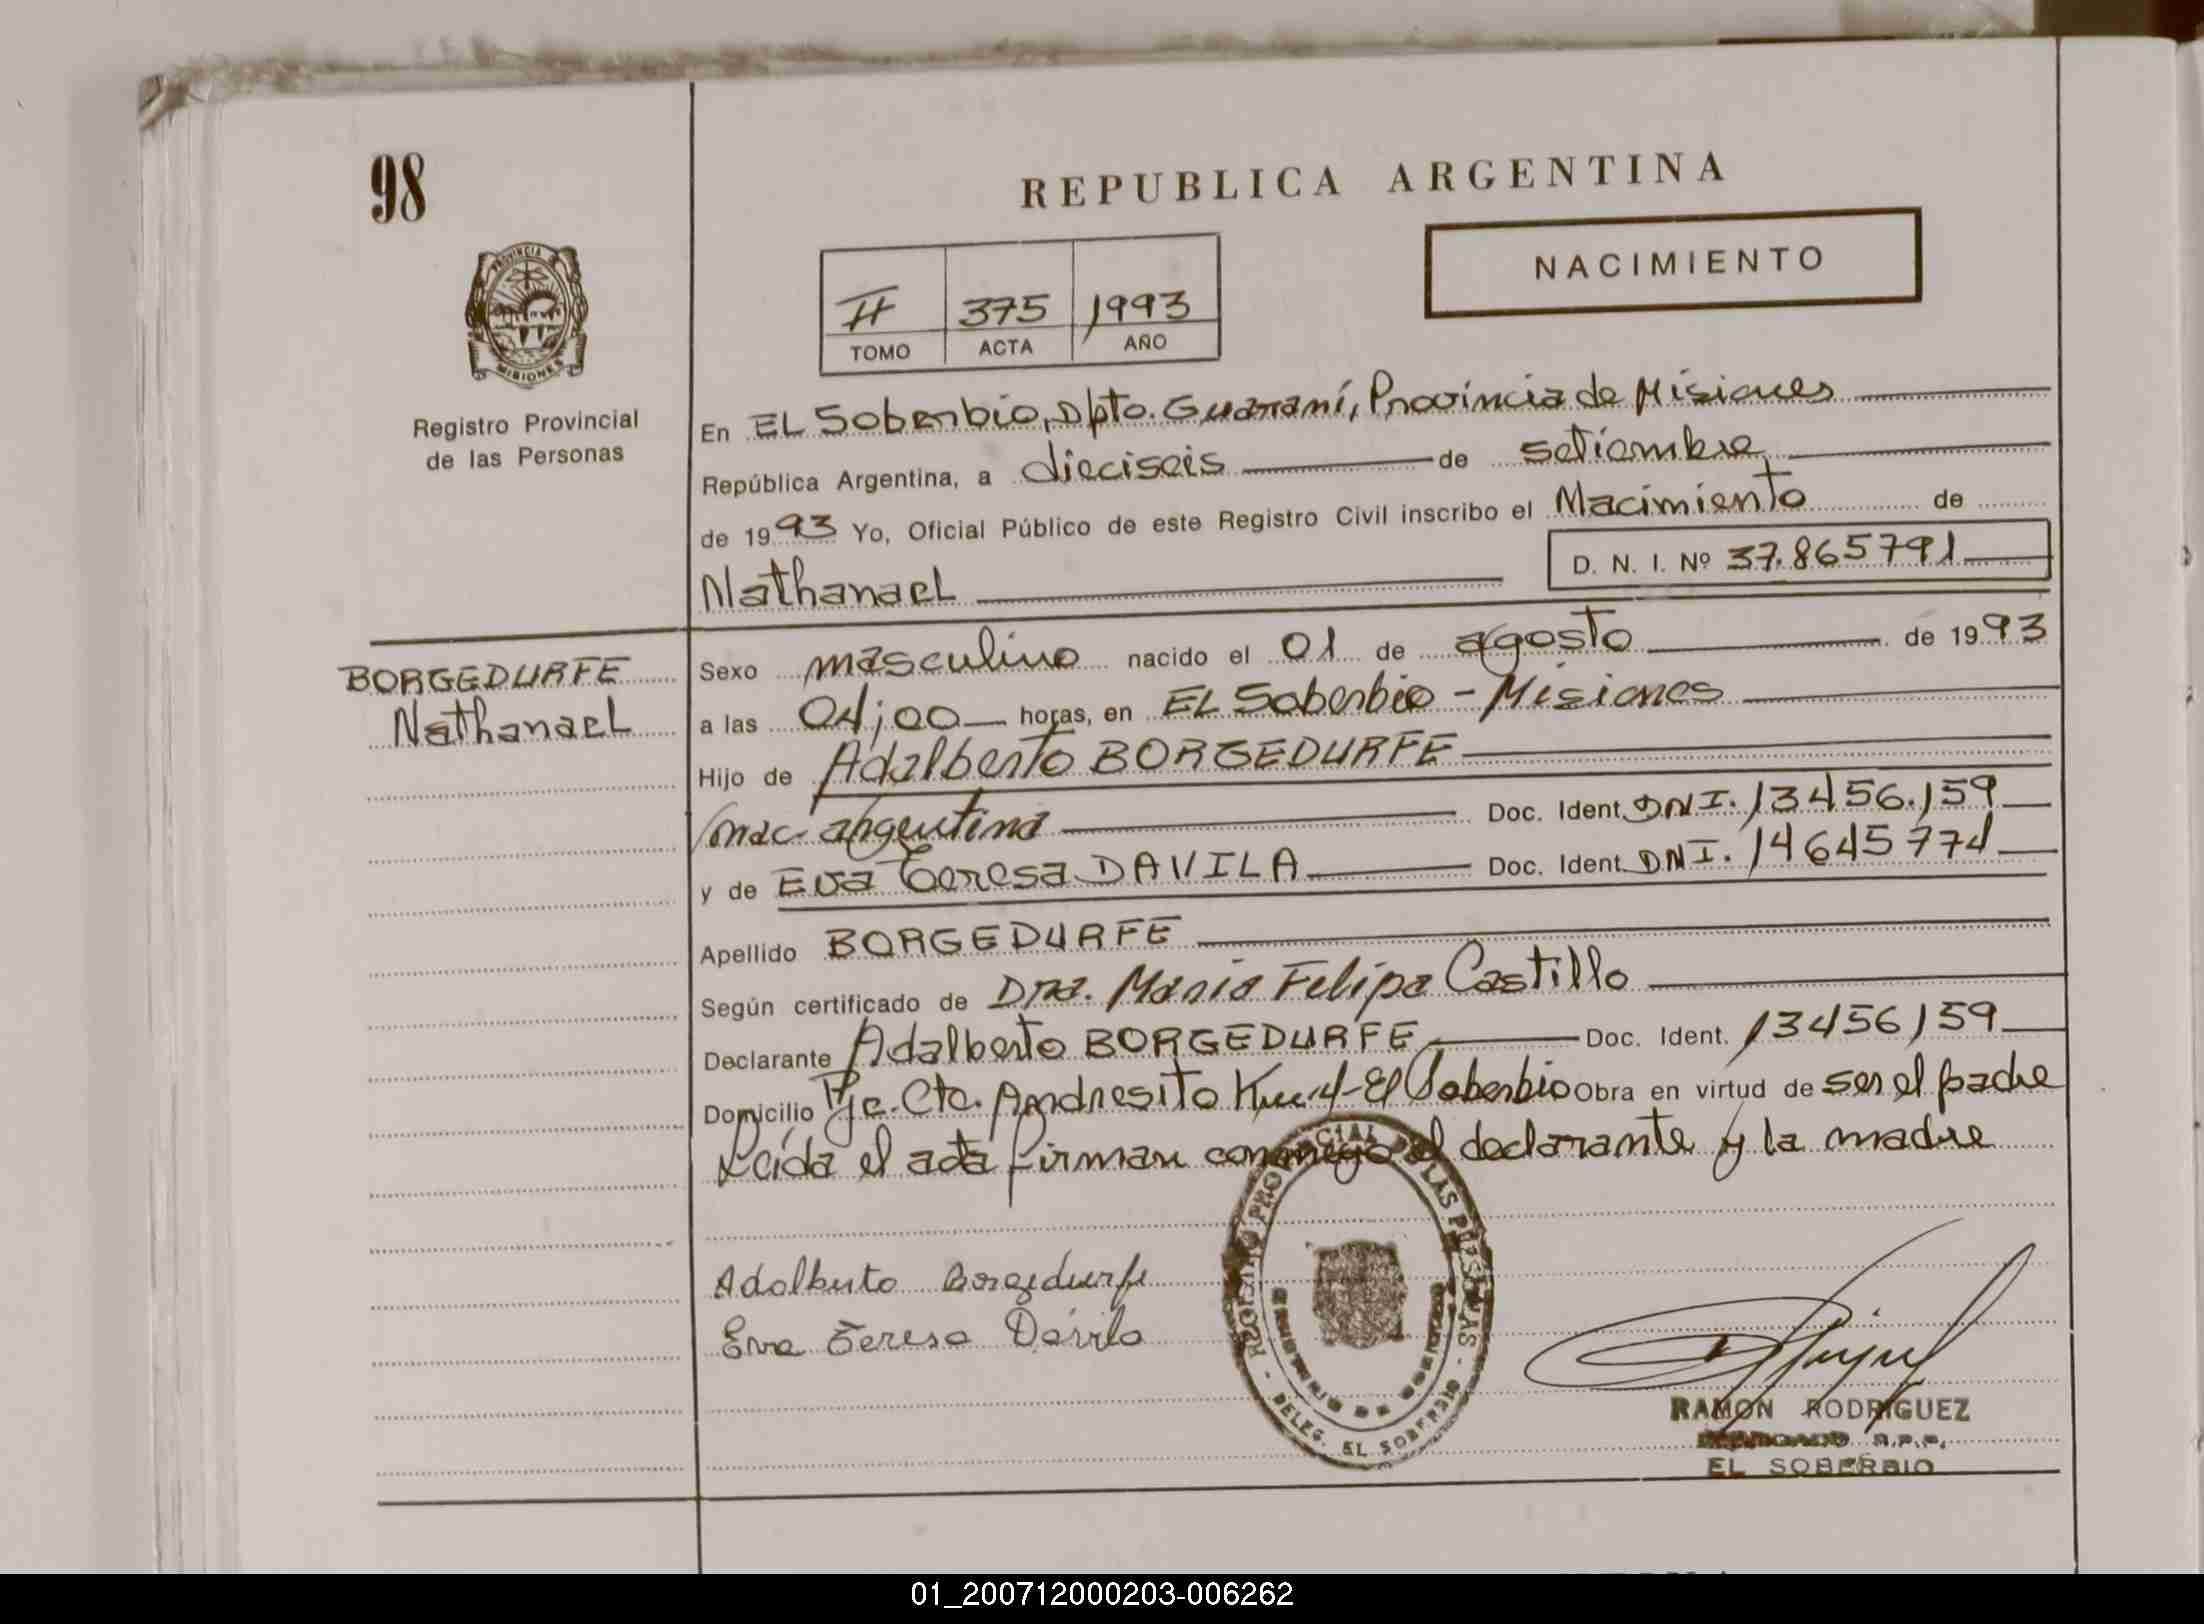 98
REPUBLICA ARGENTINA
NACIMIENTO
PROVINCIA DE
MISIONES
Registro Provincial
de las Personas
II 375 1993
TOMO ACTA AÑO
En EL Soberbio, Dpto. Guaraní, Provincia de Misiones
República Argentina, a dieciseis de setiembre
de 1993 Yo, Oficial Público de este Registro Civil inscribo el Nacimiento de
D. N. I. Nº 37.865791
Nathanael
BORGEDURFE
Nathanael
Sexo masculino nacido el 01 de agosto de 1993
a las 04;00 horas, en EL Soberbio - Misiones
Hijo de Adalberto BORGEDURFE
nac. argentina Doc. Ident. DNI. 13456.159
y de Eva Teresa DAVILA Doc. Ident. DNI. 14645774
Apellido BORGEDURFE
Según certificado de Dra. Maria Felipa Castillo
Declarante Adalberto BORGEDURFE Doc. Ident. 13456159
Domicilio Pje. Cte. Andresito Km 4 - El Soberbio Obra en virtud de ser el padre
Leída el acta firman conmigo el declarante y la madre
Adalberto Borgedurfe
Eva Teresa Dávila
REGISTRO PROVINCIAL DE LAS PERSONAS - DELEG. EL SOBERBIO -
RAMON RODRIGUEZ
R.P.P.
EL SOBERBIO
01_200712000203-006262